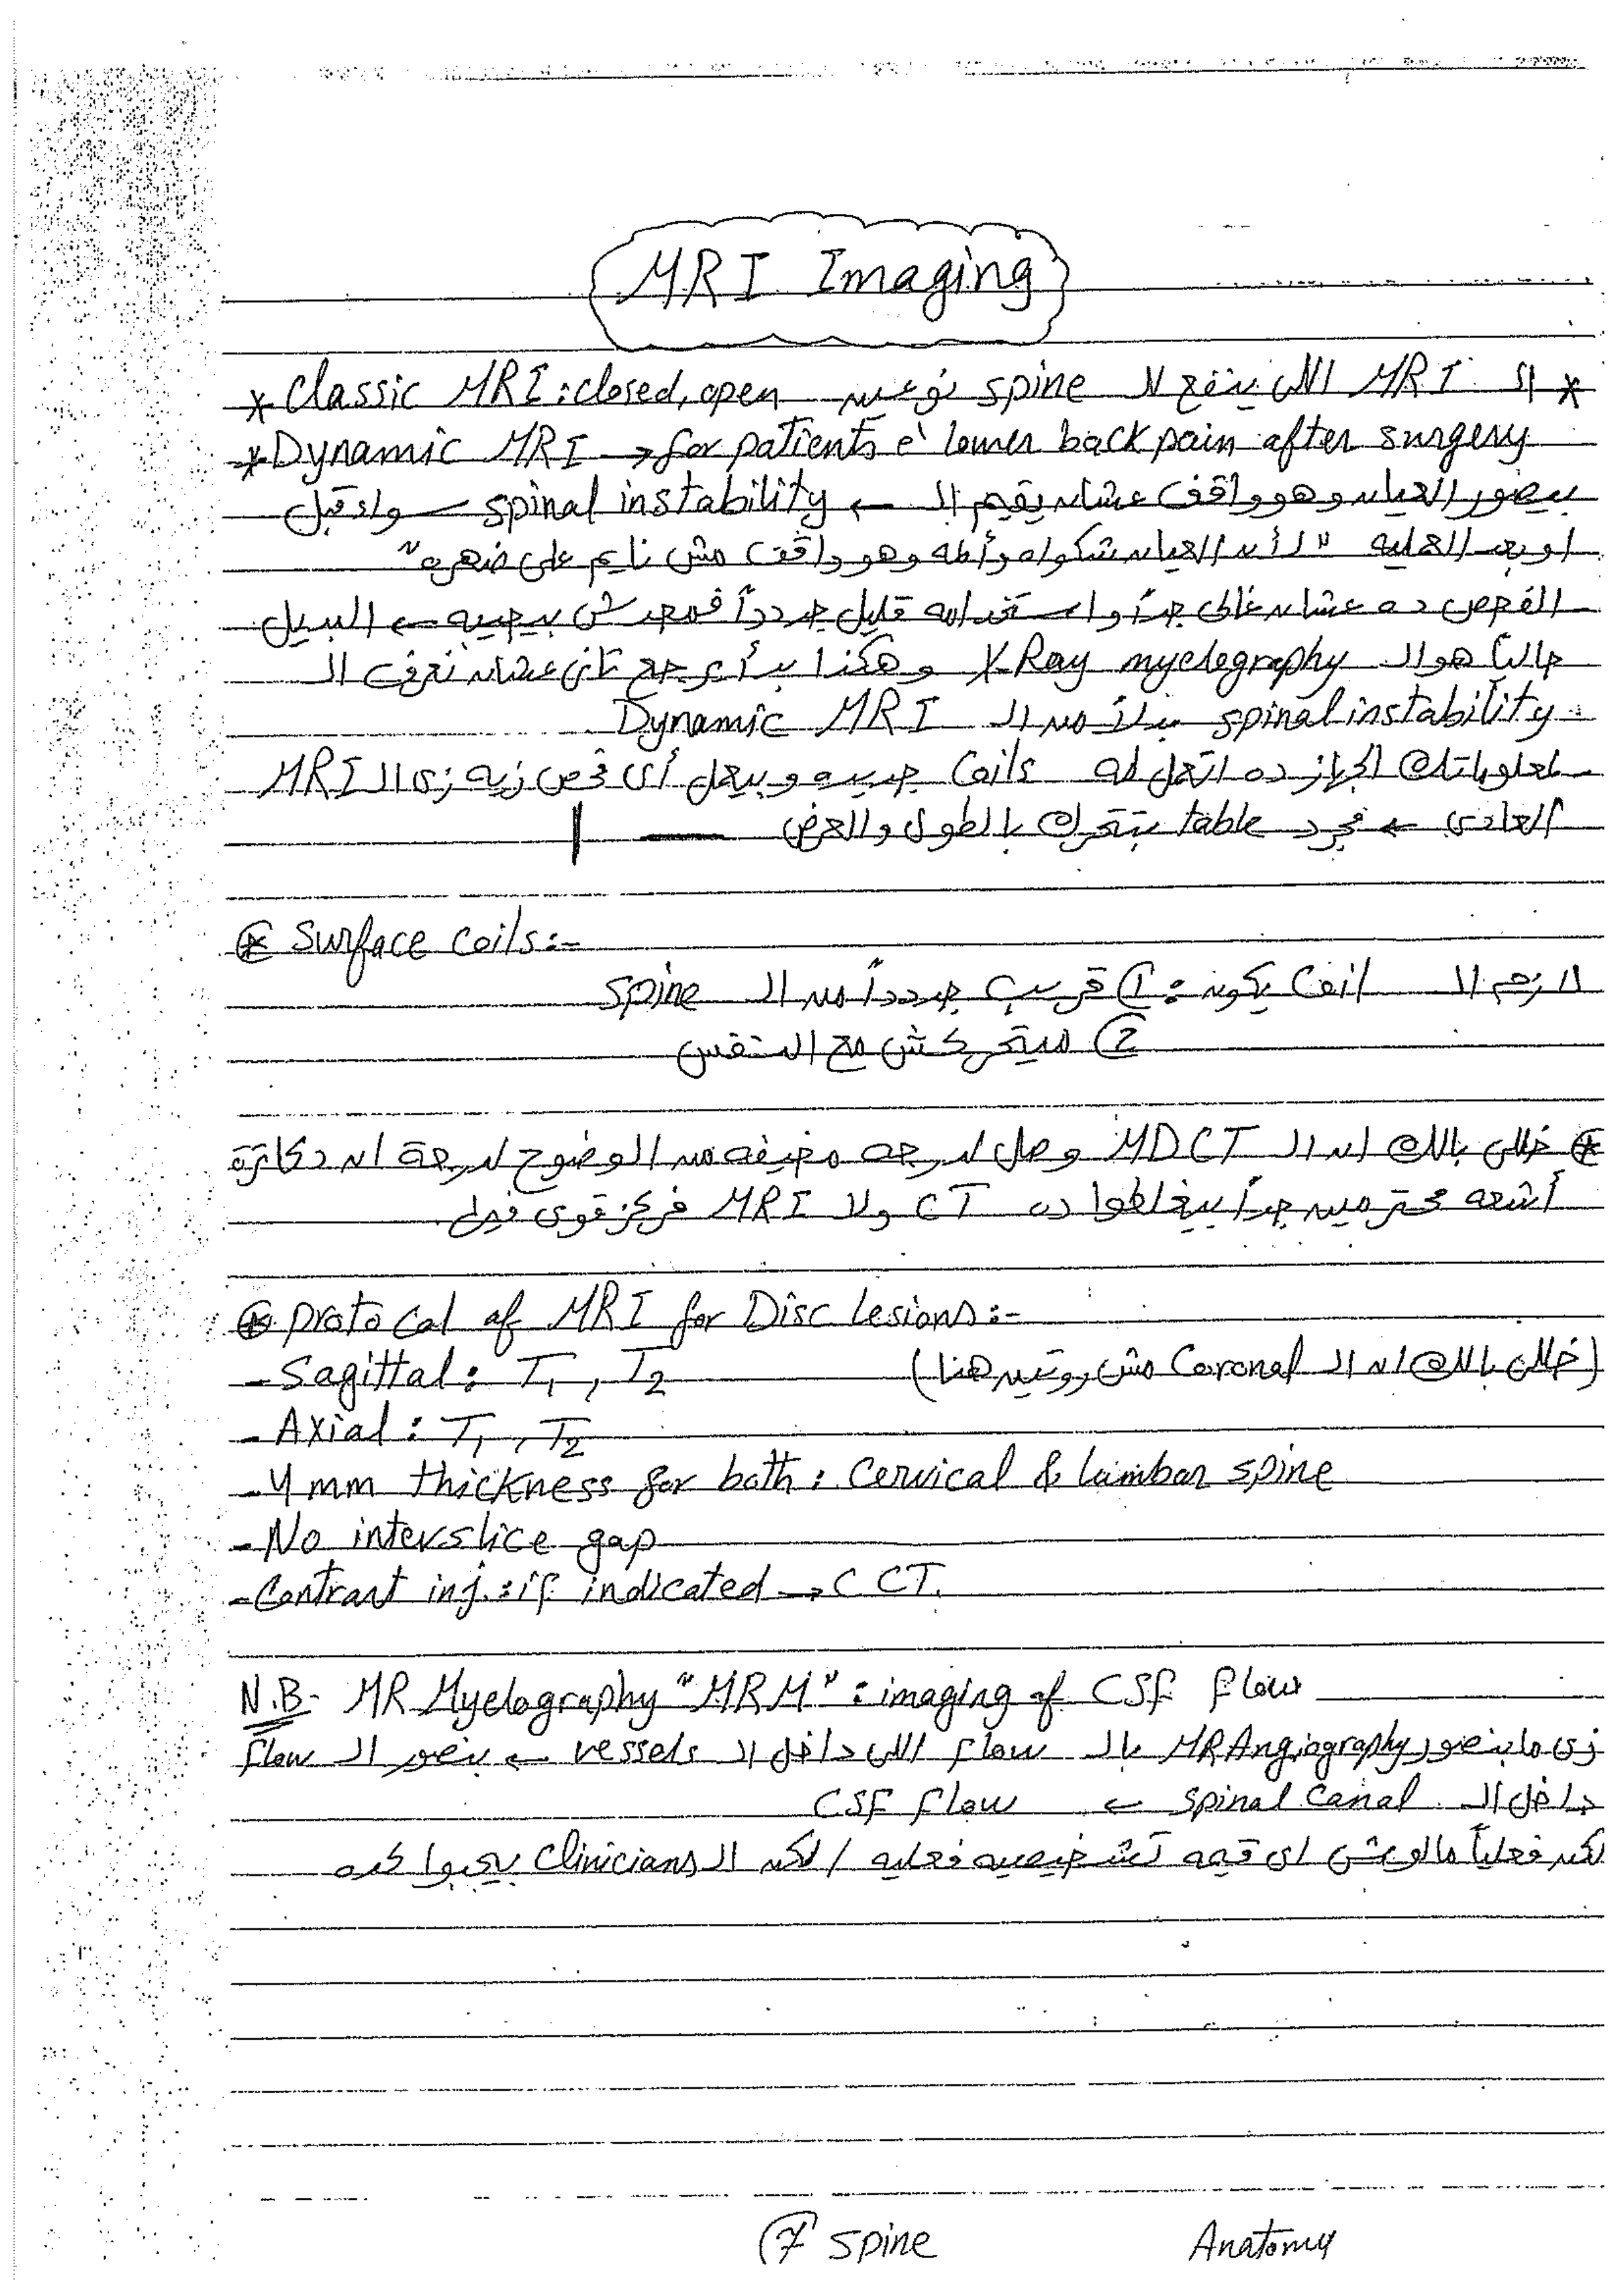 MRI Imaging
* الـ MRI اللي ينفع لـ spine نوعين * Classic MRI : closed, open
* Dynamic MRI → for patients c̄ lower back pain after surgery
بيصور العيان وهو واقف عشان يقيم الـ ← spinal instability ← سواء قبل
او بعد العملية "لأن العيان شكواه وألمه وهو واقف مش نايم على ضهره"
الفحص ده عشان غالي جداً واستخدامه قليل جدداً فمحدش بيجيبه ← البديل
حالياً هو الـ X Ray myelography وهكذا بدأ يرجع تاني عشان نعرف الـ
spinal instability بدلاً من الـ Dynamic MRI
لمعلوماتك الجهاز ده اتعمل له Coils جديده وبيعمل أى فحص زيه زى الـ MRI
العادى ← مجرد table بتتحرك بالطول والعرض
* Surface Coils :-
لازم الـ Coil يكون : ① قريب جدداً من الـ spine
② ميتحركش مع التنفس
* خللى بالك ان الـ MDCT وصل لدرجه مخيفه من الوضوح لدرجة ان دكاترة
أشعه محترمين جداً بيغلطوا ده CT ولا MRI فركز قوى فيها
* Protocal of MRI for Disc lesions :-
- Sagittal : T1 , T2 (خللى بالك ان الـ Coronal مش روتين هنا)
- Axial : T1 , T2
- 4 mm thickness for both : Cervical & lumbar spine
- No interslice gap
- Contrast inj. : if indicated → C CT.
N.B- MR Myelography "MRM" : imaging of CSF flow
زى ما بنصور MR Angiography بالـ flow اللى داخل الـ vessels ← بنصور الـ flow
داخل الـ spinal canal ← CSF flow
لكن فعلياً مالوش اى قيمه تشخيصيه فعليه / لكن الـ Clinicians بيحبوا كده
⑦ spine Anatomy